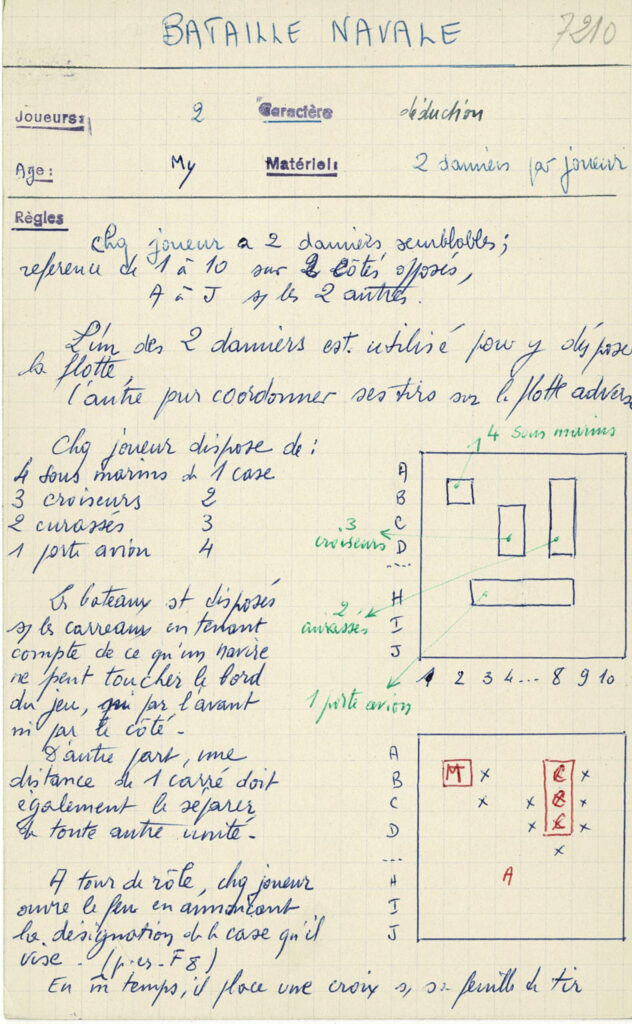 BATAILLE NAVALE 7210
Joueurs: 2 Caractère déduction
Age: My Matériel: 2 damiers par joueur
Règles
Chq joueur a 2 damiers semblables;
reference de 1 à 10 sur 2 côtés opposés,
A à J s/ les 2 autres.
L'un des 2 damiers est utilisé pour y dépose
la flotte,
l'autre pour coordonner ses tirs sur la flotte advers
Chq joueur dispose de:
4 sous marins de 1 case
3 croiseurs 2
2 curassés 3
1 porte avion 4
4 sous marins
A
B
C
D
----
H
I
J
3
croiseurs
2
curassés
1 porte avion
1 2 3 4... 8 9 10
Les bateaux st disposés
s/ les carreaux en tenant
compte de ce qu'un navire
ne peut toucher le bord
du jeu, ni par l'avant
ni par le côté.
D'autre part, une
distance de 1 carré doit
également le séparer
de toute autre unité.
A
B M x C x
C x x C x
D x C x
--- x
H A
I
J
A tour de rôle, chq joueur
ouvre le feu en annonçant
la désignation de la case qu'il
vise. (p. ex. F8)
En m temps, il place une croix s/ sa feuille de tir